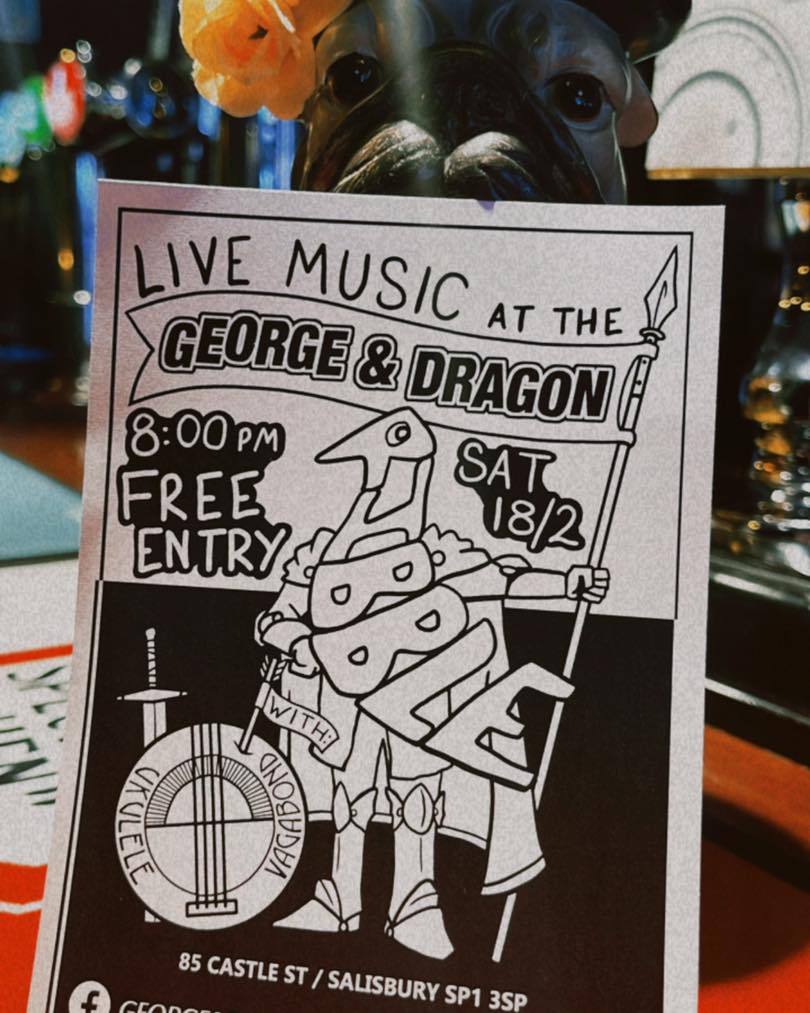 LIVE MUSIC AT THE
GEORGE & DRAGON
8:00 PM
FREE
ENTRY
SAT
18/2
WITH:
UKULELE
VAGABOND
85 CASTLE ST / SALISBURY SP1 3SP